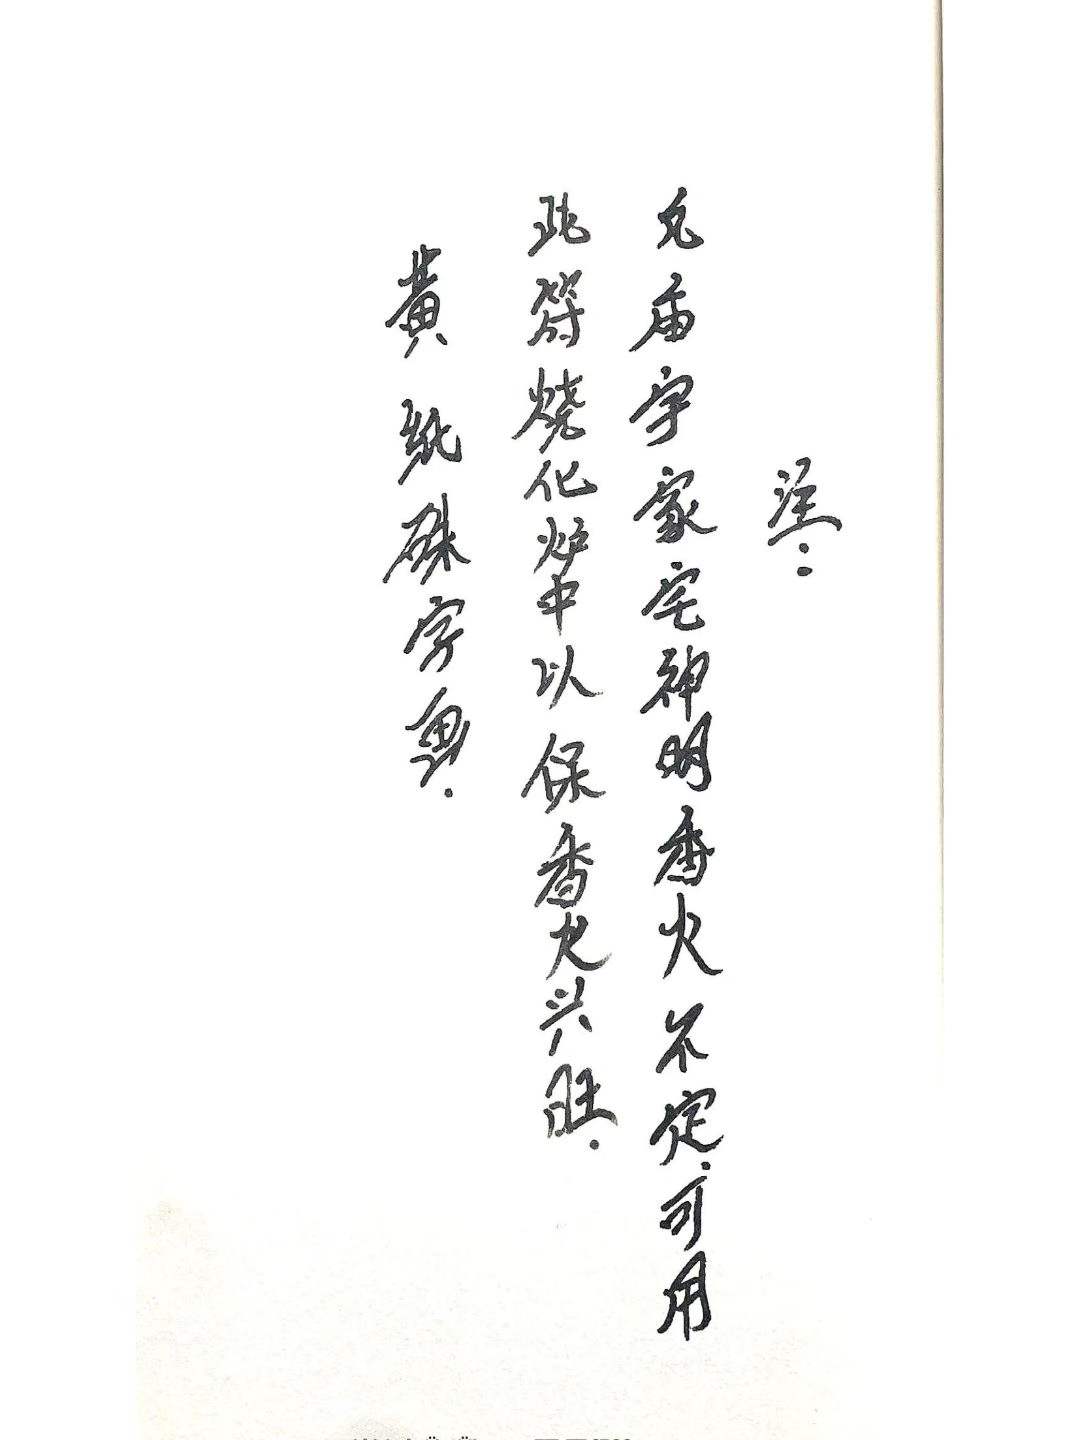 注：
凡庙宇家宅神明香火不定.可用
此符烧化炉中以保香火兴旺.
黄纸硃字画.